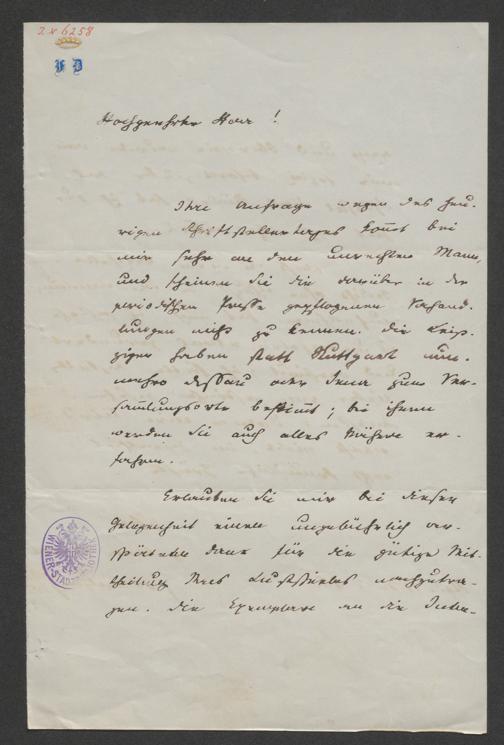 J. N 6258
F D
Hochgeehrter Herr!
Ihre Anfrage wegen des heu-
rigen Schriftstellertages kömt bei
mir sehr an den unrechten Mann,
und scheinen Sie die darüber in der
periodischen Presse gepflogenen Verhand-
lungen nicht zu kennen. Die Leip-
ziger haben statt Stuttgart nun-
mehro Dessau oder Jena zum Ver-
samlungsorte bestimt; bei ihnen
werden Sie auch alles Nähere er-
fahren.
Erlauben Sie mir bei dieser
Gelegenheit einen ungebührlich ver-
späteten Dank für die gütige Mit-
theilung Ihres Lustspieles nachzutra-
gen. Die Exemplare an die Inten-
WIENER-STADT-BIBLIOTHEK